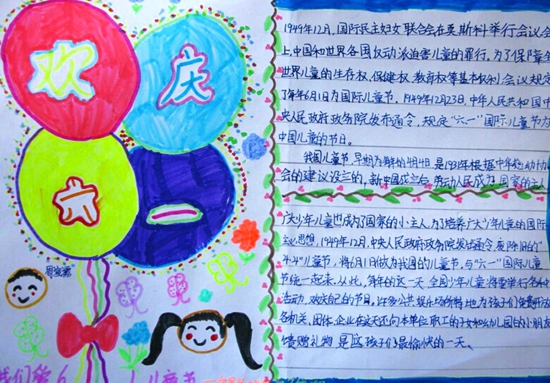 欢
庆
六
一
1949年12月,国际民主妇女联合会在莫斯科举行会议会
上,中国和世界各国
儿童的罪行,为了保障
世界儿童的生存权、保健权、教育权等基本权利会议规定
了每年6月1日为国际儿童节。1949年12月23日,中华人民共和国中
央人民政府政务院发布通令,规定“六一”国际儿童节为
中国儿童的节日。
我国儿童节早期为每年的4月4日,是1931年根据中华慈幼协
会的建议设立的,新中国成立后,劳动人民成为国家的主人
广大少年儿童也成为了国家的小主人,为了培养广大少年儿童的国际
主义思想,1949年12月,中央人民政府政务院发出通令废除旧的“
4·4”儿童节,将6月1日做为我国的儿童节,与“六一”国际儿童
节统一起来,从此,每年的这一天,全国少年儿童
活动,欢庆自己的节日,许多公共娱乐场所
各机关、团体、企业在这天还向本单位职工的子女和幼儿园的小朋友
馈赠礼物,是孩子们最愉快的一天。
儿童节